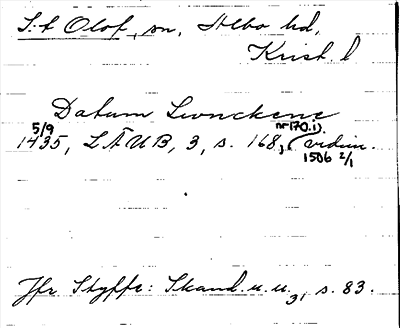 S:t Olof, sn, Albo hd,
Krist. l
Datum Lwnckene
5/9 nr 170.i).
1435, LÄUB, 3, s. 168, (vidim.
1506 2/1
Jfr Styffe: Skand. u. u.3, s. 83.